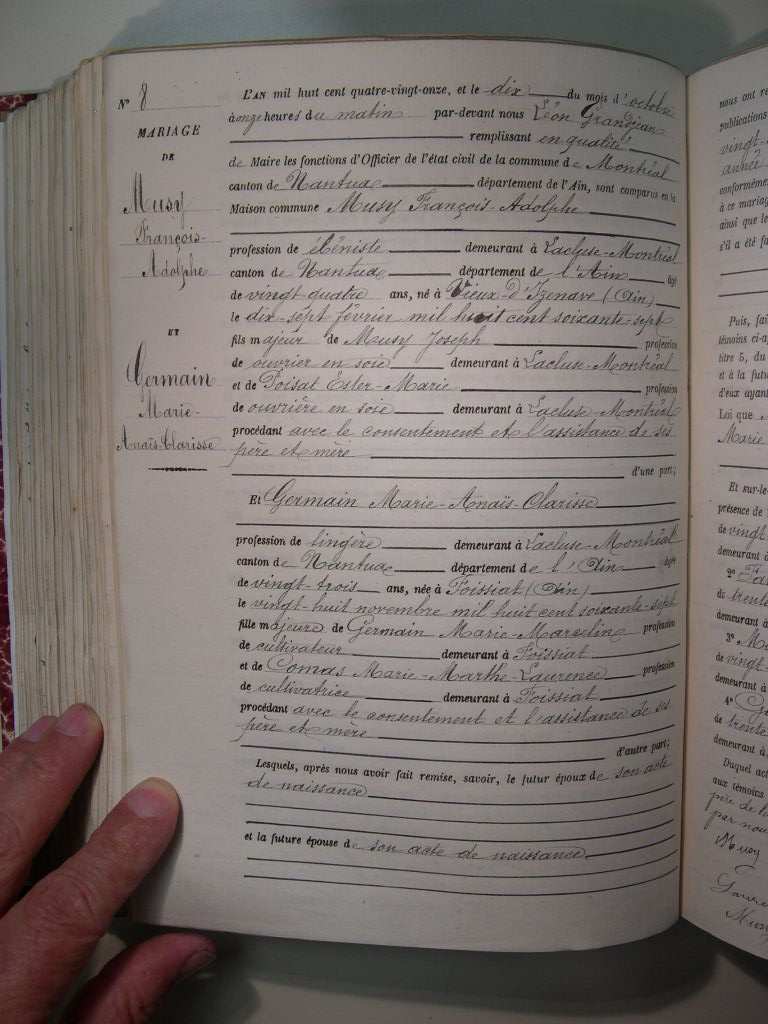 N° 8
MARIAGE
DE
Musy
François-
Adolphe
ET
Germain
Marie-
Anaïs-Clarisse
L'AN mil huit cent quatre-vingt-onze, et le dix du mois d'octobre
à onze heures du matin par-devant nous Léon Grandjean
remplissant en qualité
de Maire les fonctions d'Officier de l'état civil de la commune de Montréal
canton de Nantua département de l'Ain, sont comparus en la
Maison commune Musy François-Adolphe
profession de ébéniste demeurant à Lacluse-Montréal
canton de Nantua département de l'Ain âgé
de vingt-quatre ans, né à Vieux-d'Izenave (Ain)
le dix-sept février mil huit cent soixante-sept
fils majeur de Musy Joseph profession
de ouvrier en soie demeurant à Lacluse-Montréal
et de Poisat Ester-Marie profession
de ouvrière en soie demeurant à Lacluse-Montréal
procédant avec le consentement et l'assistance de ses
père et mère
d'une part;
Et Germain Marie-Anaïs-Clarisse
profession de lingère demeurant à Lacluse-Montréal
canton de Nantua département de l'Ain âgée
de vingt-trois ans, née à Foissiat (Ain)
le vingt-huit novembre mil huit cent soixante-sept
fille majeure de Germain Marie-Marcelin profession
de cultivateur demeurant à Foissiat
et de Comas Marie-Marthe-Laurence profession
de cultivatrice demeurant à Foissiat
procédant avec le consentement et l'assistance de ses
père et mère
d'autre part;
Lesquels, après nous avoir fait remise, savoir, le futur époux de son acte
de naissance
et la future épouse de son acte de naissance
nous ont re
publications
vingt-
année
conformémen
à ce mariag
ainsi que le
s'il a été fa
Puis, fai
témoins ci-ap
titre 5, du
et à la futur
d'eux ayant
Loi que
Marie
Et sur-le-
présence de
de vingt-
demeurant à
2°
de trente
demeurant à
3° Mu
de vingt-
demeurant à
4°
de trente
demeurant à
Duquel act
aux témoins
père de la
par nou
Musy
Musy